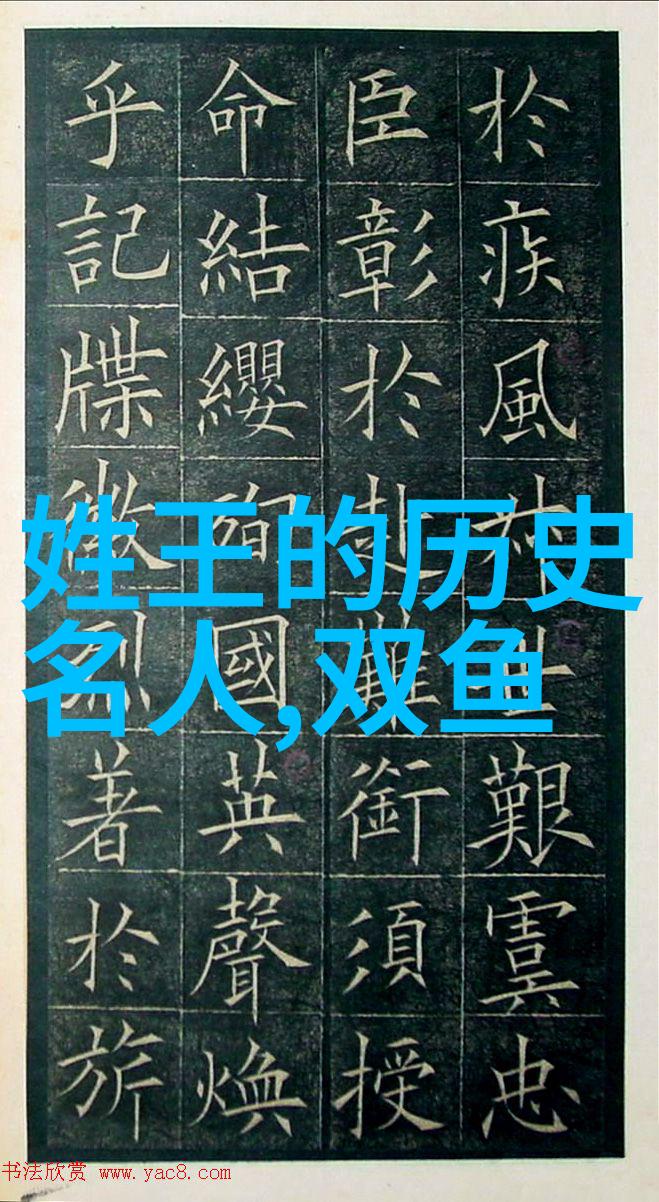 於疾風叔世艱虞忠
臣彰於赴難銜須授
命結纓殉國英聲煥
乎記牒徽烈著於旂
姓王的历史
名人,双鱼
书法欣赏 www.yac8.com